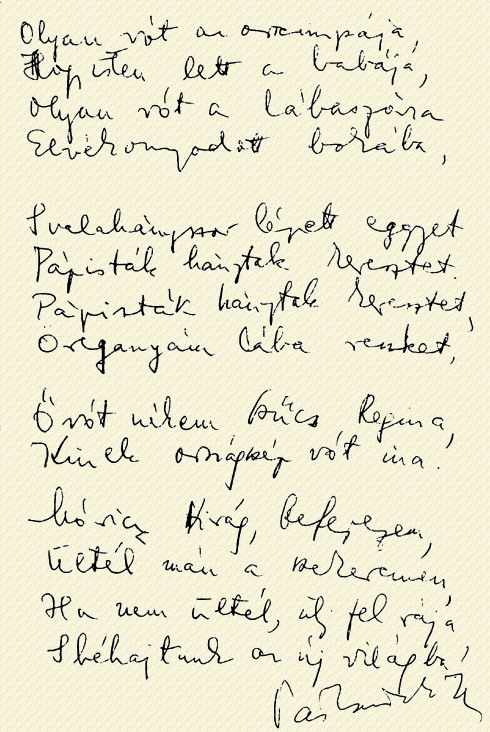 Olyan vót az orcimpája,
Hogy isten lett a babája,
Olyan vót a lábaszára
Elvékonyodott bokába,
S valahányszor lépett eggyet
Pápisták hánytak keresztet.
Pápisták hánytak keresztet,
Öreganyám lába reszket,
Ő vót nékem Szűcs Regina,
Kinek országkép vót ina.
Móricz Virág, befejezem,
Ültél mán a szekeremen,
Ha nem ültél, ülj fel rája
S béhajtunk az új világba!